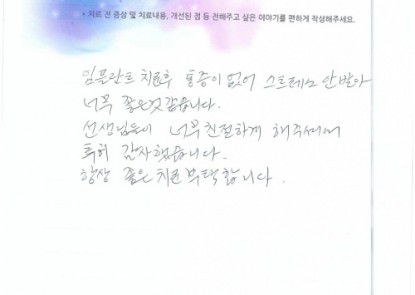 * 치료 전 증상 및 치료내용, 개선된 점 등 전해주고 싶은 이야기를 편하게 작성해주세요.
임플란트 치료후 통증이 없어 스트레스 안받아
너무 좋은것 같습니다.
선생님들이 너무 친절하게 해주셔서
특히 감사했습니다.
항상 좋은 치료 부탁합니다.